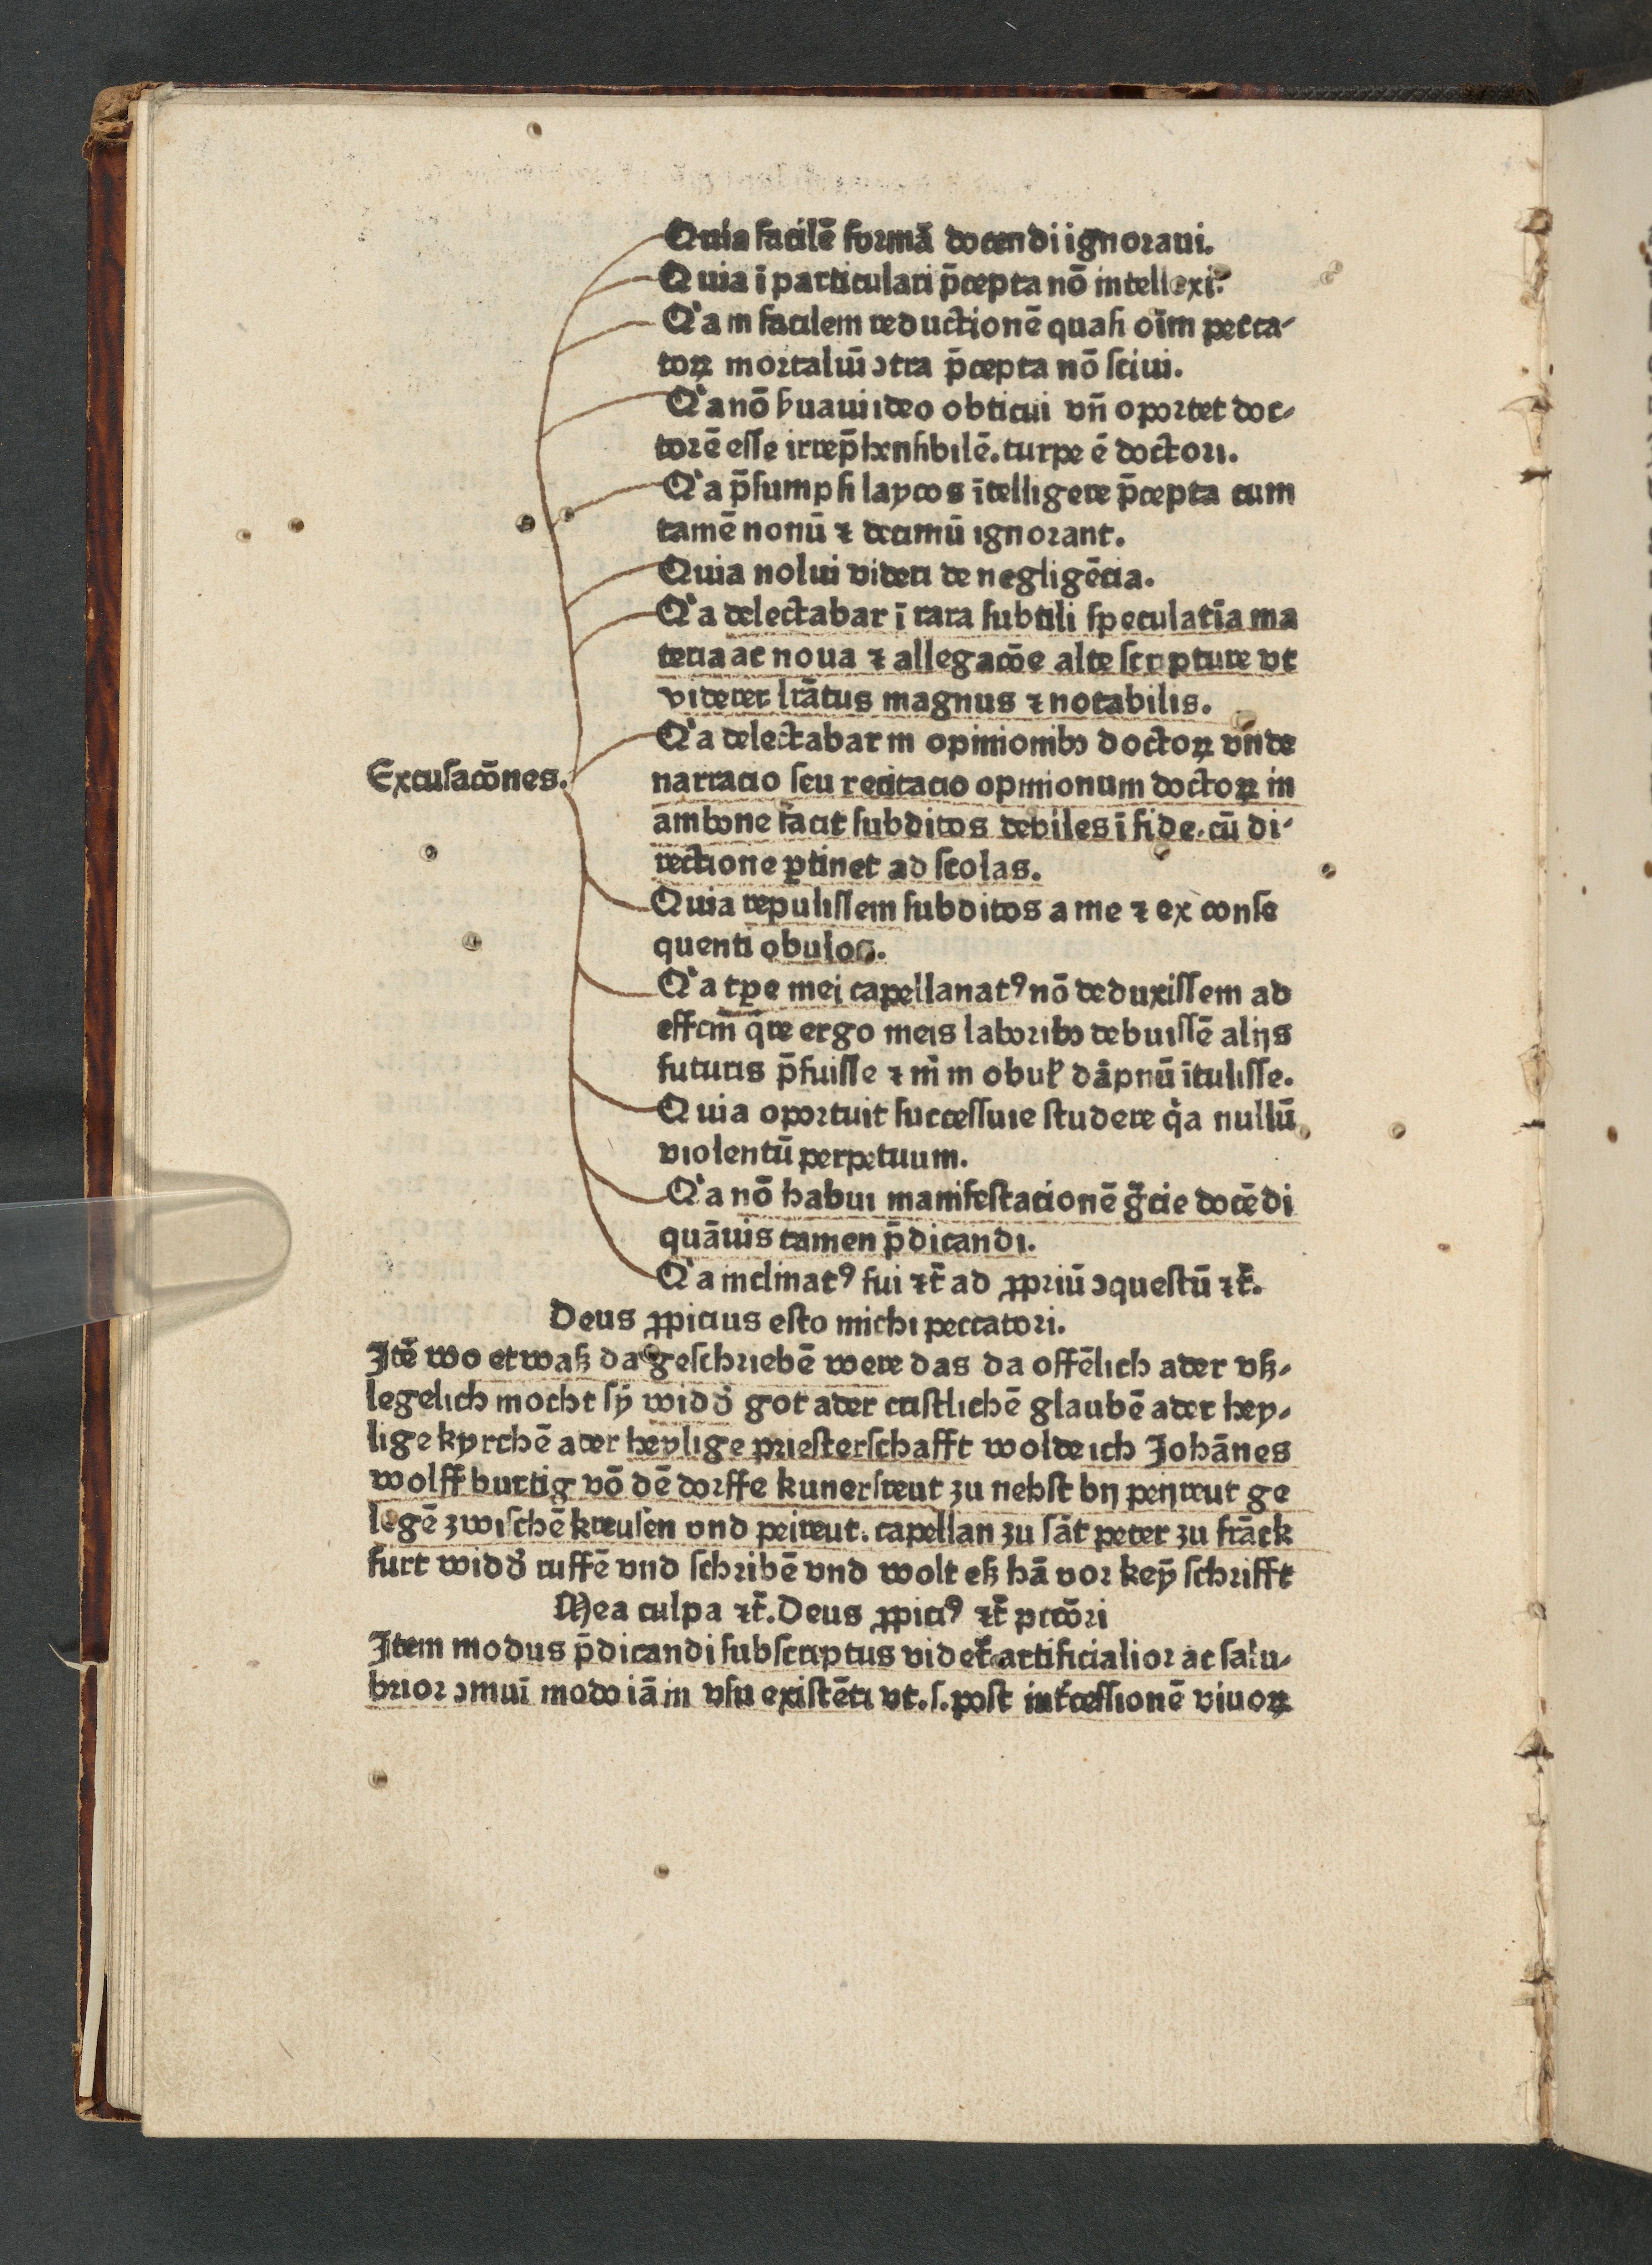 Quia facilē formā docendi ignoraui.
Quia ī particulari p̄cepta nō intellexi.
Qͥa in facilem reductionē quasi oīm pecca⸗
toꝝ mortaliū ↄtra p̄cepta nō sciui.
Qͥa nō ẜuaui ideo obticui vn̄ oportet doc⸗
torē esse irrep̄hensibilē. turpe ē doctori.
Qͥa p̄sumpsi laycos ītelligere p̄cepta cum
tamē nonū ⁊ decimū ignorant.
Quia nolui videri de negligēcia.
Qͥa delectabar ī rara subtili speculatīa ma
teria ac noua ⁊ allegacōe alte scripture vt
viderer lrātus magnus ⁊ notabilis.
Excusacōnes.
Qͥa delectabar in opinionibꝫ doctoꝝ vnde
narracio seu recitacio opinionum doctoꝝ in
ambone facit subditos debiles ī fide. cū di⸗
rectione ꝑtinet ad scolas.
Quia repulissem subditos a me ⁊ ex conse
quenti obulos.
Qͥa tꝑe mei capellanatꝰ nō deduxissem ad
effcm̄ qͣre ergo meis laboribꝫ debuissē alijs
futuris p̄fuisse ⁊ m̄ in obul' dāpnū ītulisse.
Quia oportuit successiue studere qͥa nullū
violentū perpetuum.
Qͥa nō habui manifestacionē gr̄cie docēdi
quāuis tamen p̄dicandi.
Qͥa inclinatꝰ fui ⁊c̄ ad ꝓpriū ↄquestū ⁊c̄.
Deus ꝓpicius esto michi peccatori.
Itē wo etwaß da geschriebē were das da offēlich ader vß⸗
legelich mocht sȳ widd' got ader cristlichē glaubē ader hey⸗
lige kyrchē ader heylige priesterschafft wolde ich Johānes
wolff burtig vō dē dorffe kunersreut zu nehst bij peijreut ge
legē zwischē kreusen vnd peireut. capellan zu sāt peter zu frāck
furt widd' ruffē vnd schribē vnd wolt eß hā vor keȳ schrifft
Mea culpa ⁊c̄. Deus ꝓpiciꝰ ⁊c̄ pctōri
Item modus p̄dicandi subscriptus videt᷑ artificialior ac salu⸗
brior ↄmuī modo iā in vsu existēti vt .s. post int᷑cessionē viuoꝝ